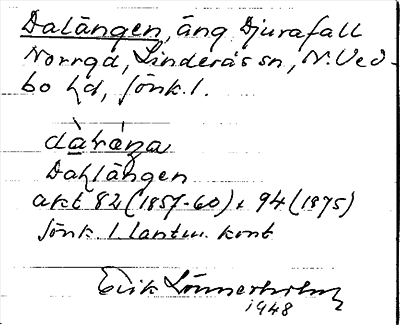 Dalängen, äng Djurafall
Norrgd, Linderås sn, N. Ved-
bo hd, Jönk. l.
dàlæ̀ŋa
Dahlängen
akt 82 (1857-60), 94 (1875)
Jönk. l. lantm. kont
Erik Lönnerholm
1948